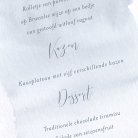 Rolletje van
op Brusselse wijze op een bedje
van gestoofd witloof
Kazen
Kaasplateau met vijf verschillende kazen
Dessert
Traditionele chocolade tiramisu